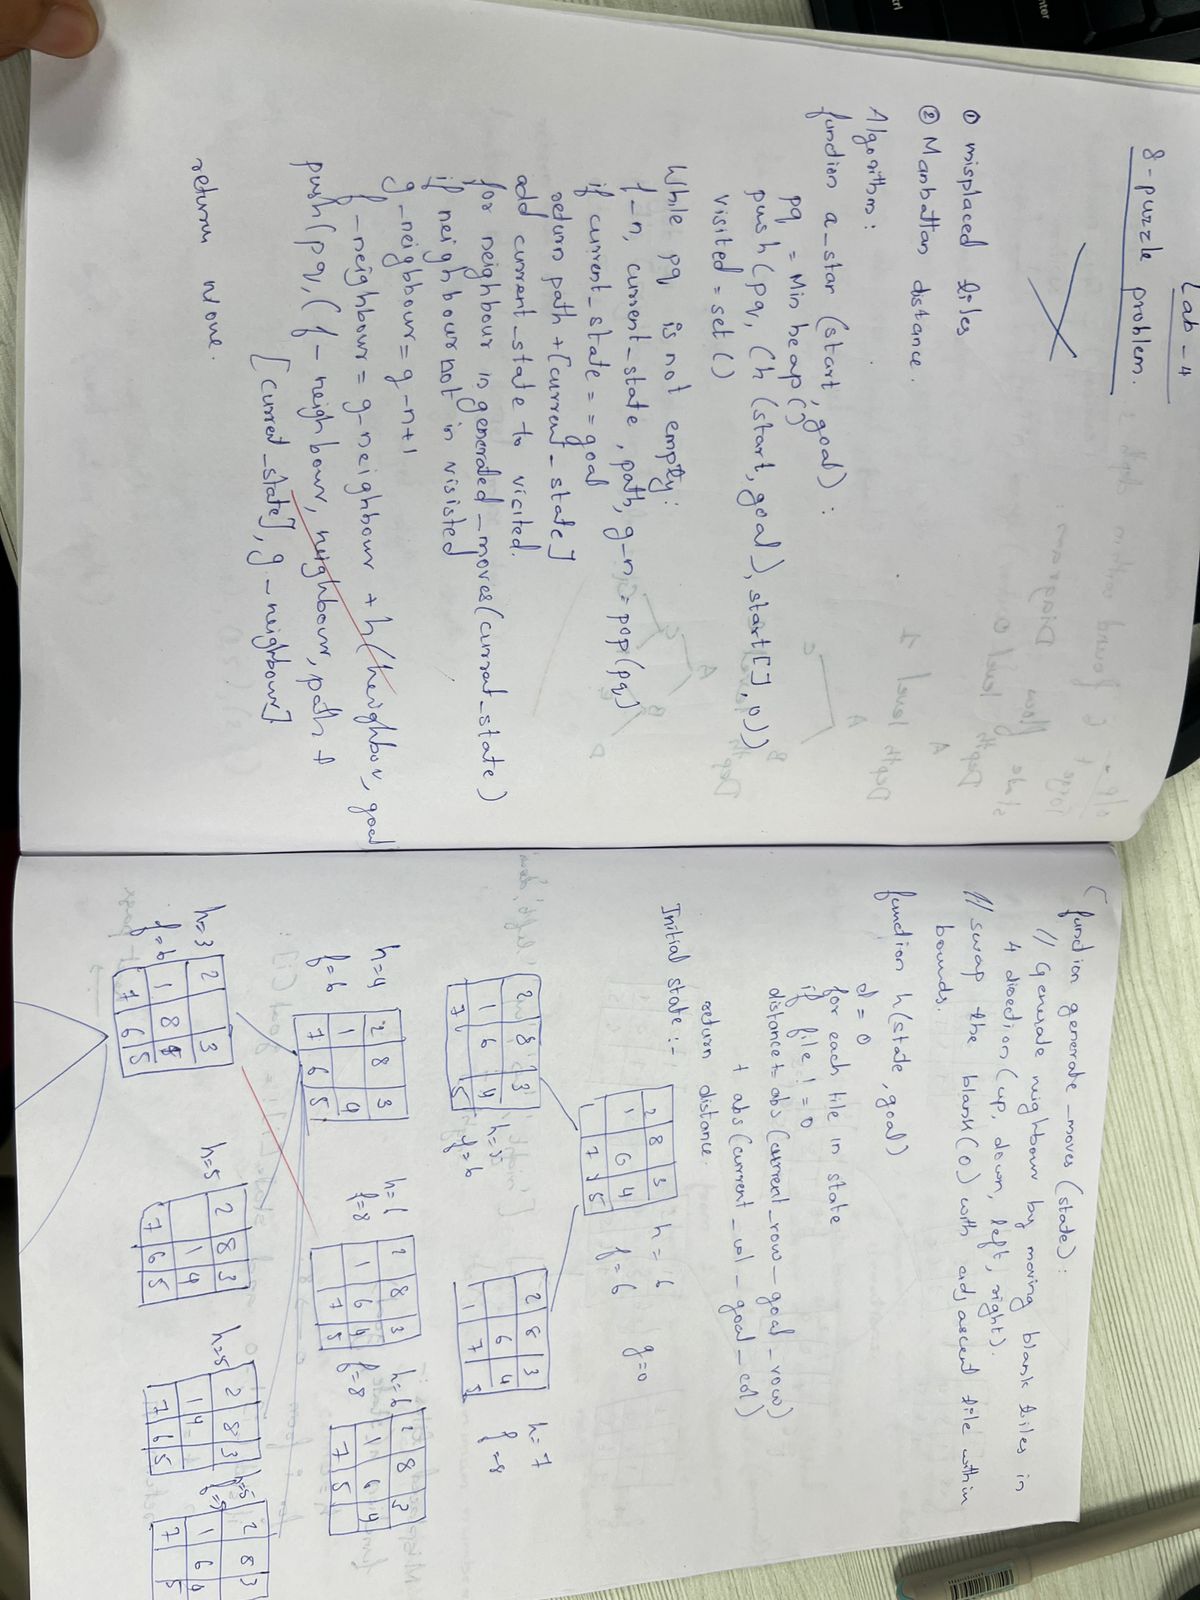 Lab - 4
8-puzzle problem.
① misplaced tiles
② Manhattan distance.
Algorithm:
function a_star (start, goal):
pq = Min heap()
push (pq, (h (start, goal), start[], 0))
visited = set ()
While pq is not empty:
f_n, current_state, path, g_n = pop (pq)
if current_state == goal
return path + [current_state]
add current_state to visited.
for neighbour in generated_moves (current_state)
if neighbour not in visisted
g_neighbour = g_n+1
f_neighbour = g_neighbour + h(neighbor, goal
push (pq, (f_neighbour, neighbour, path +
[current_state], g_neighbour]
return None.
( function generate_moves (state):
// Generate neighbour by moving blank tiles in
4 direction (up, down, left, right).
// swap the blank (0) with adjascent tile within
bounds.
function h(state, goal)
d = 0
for each tile in state
if tile != 0
distance + abs (current_row - goal_row)
+ abs (current_col - goal_col)
return distance.
Initial state:-
2 8 3
1 6 4
7 5
h = 6
f = 6
g=0
2 8 3
1 6 4
7 5
h=5
f=6
2 8 3
6 4
1 7 5
h=7
f=8
h=4
f=6
2 8 3
1 4
7 6 5
f=8
2 8 3
1 6 4
7 5
h=6
f=8
2 8 3
1 6 4
7 5
h=3
f=6
2 3
1 8
7 6 5
h=5
2 8 3
1 4
7 6 5
h=5
2 8 3
1 4
7 6 5
h=5
2 8 3
1 6 4
7 5
ctrl
enter